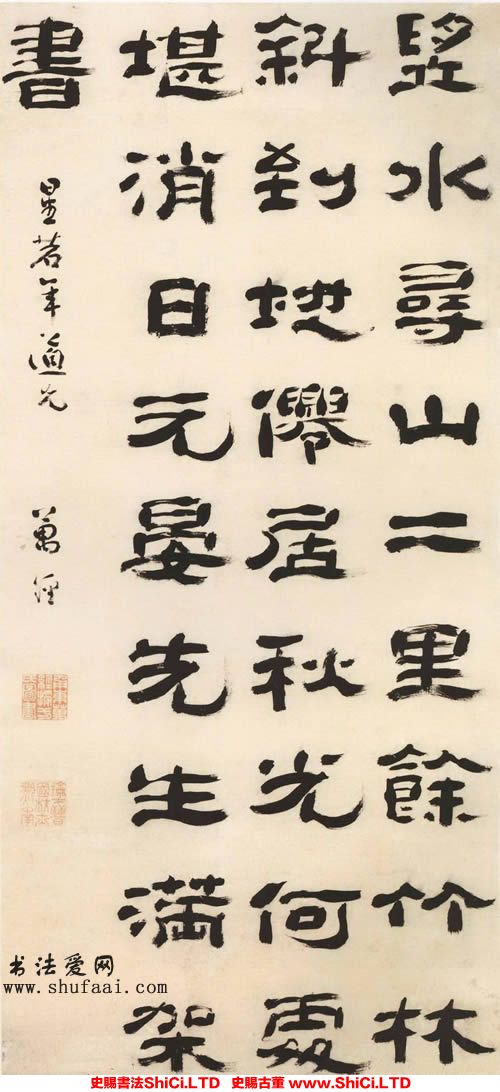 朢水尋山二里餘竹林
斜到地僊居秋光何處
堪消日元晏先生滿架
書
若年道兄 萬經
书法爱网
www.shufaai.com
史賜書法ShiCi.LTD 史賜古董 www.ShiCi.LTD